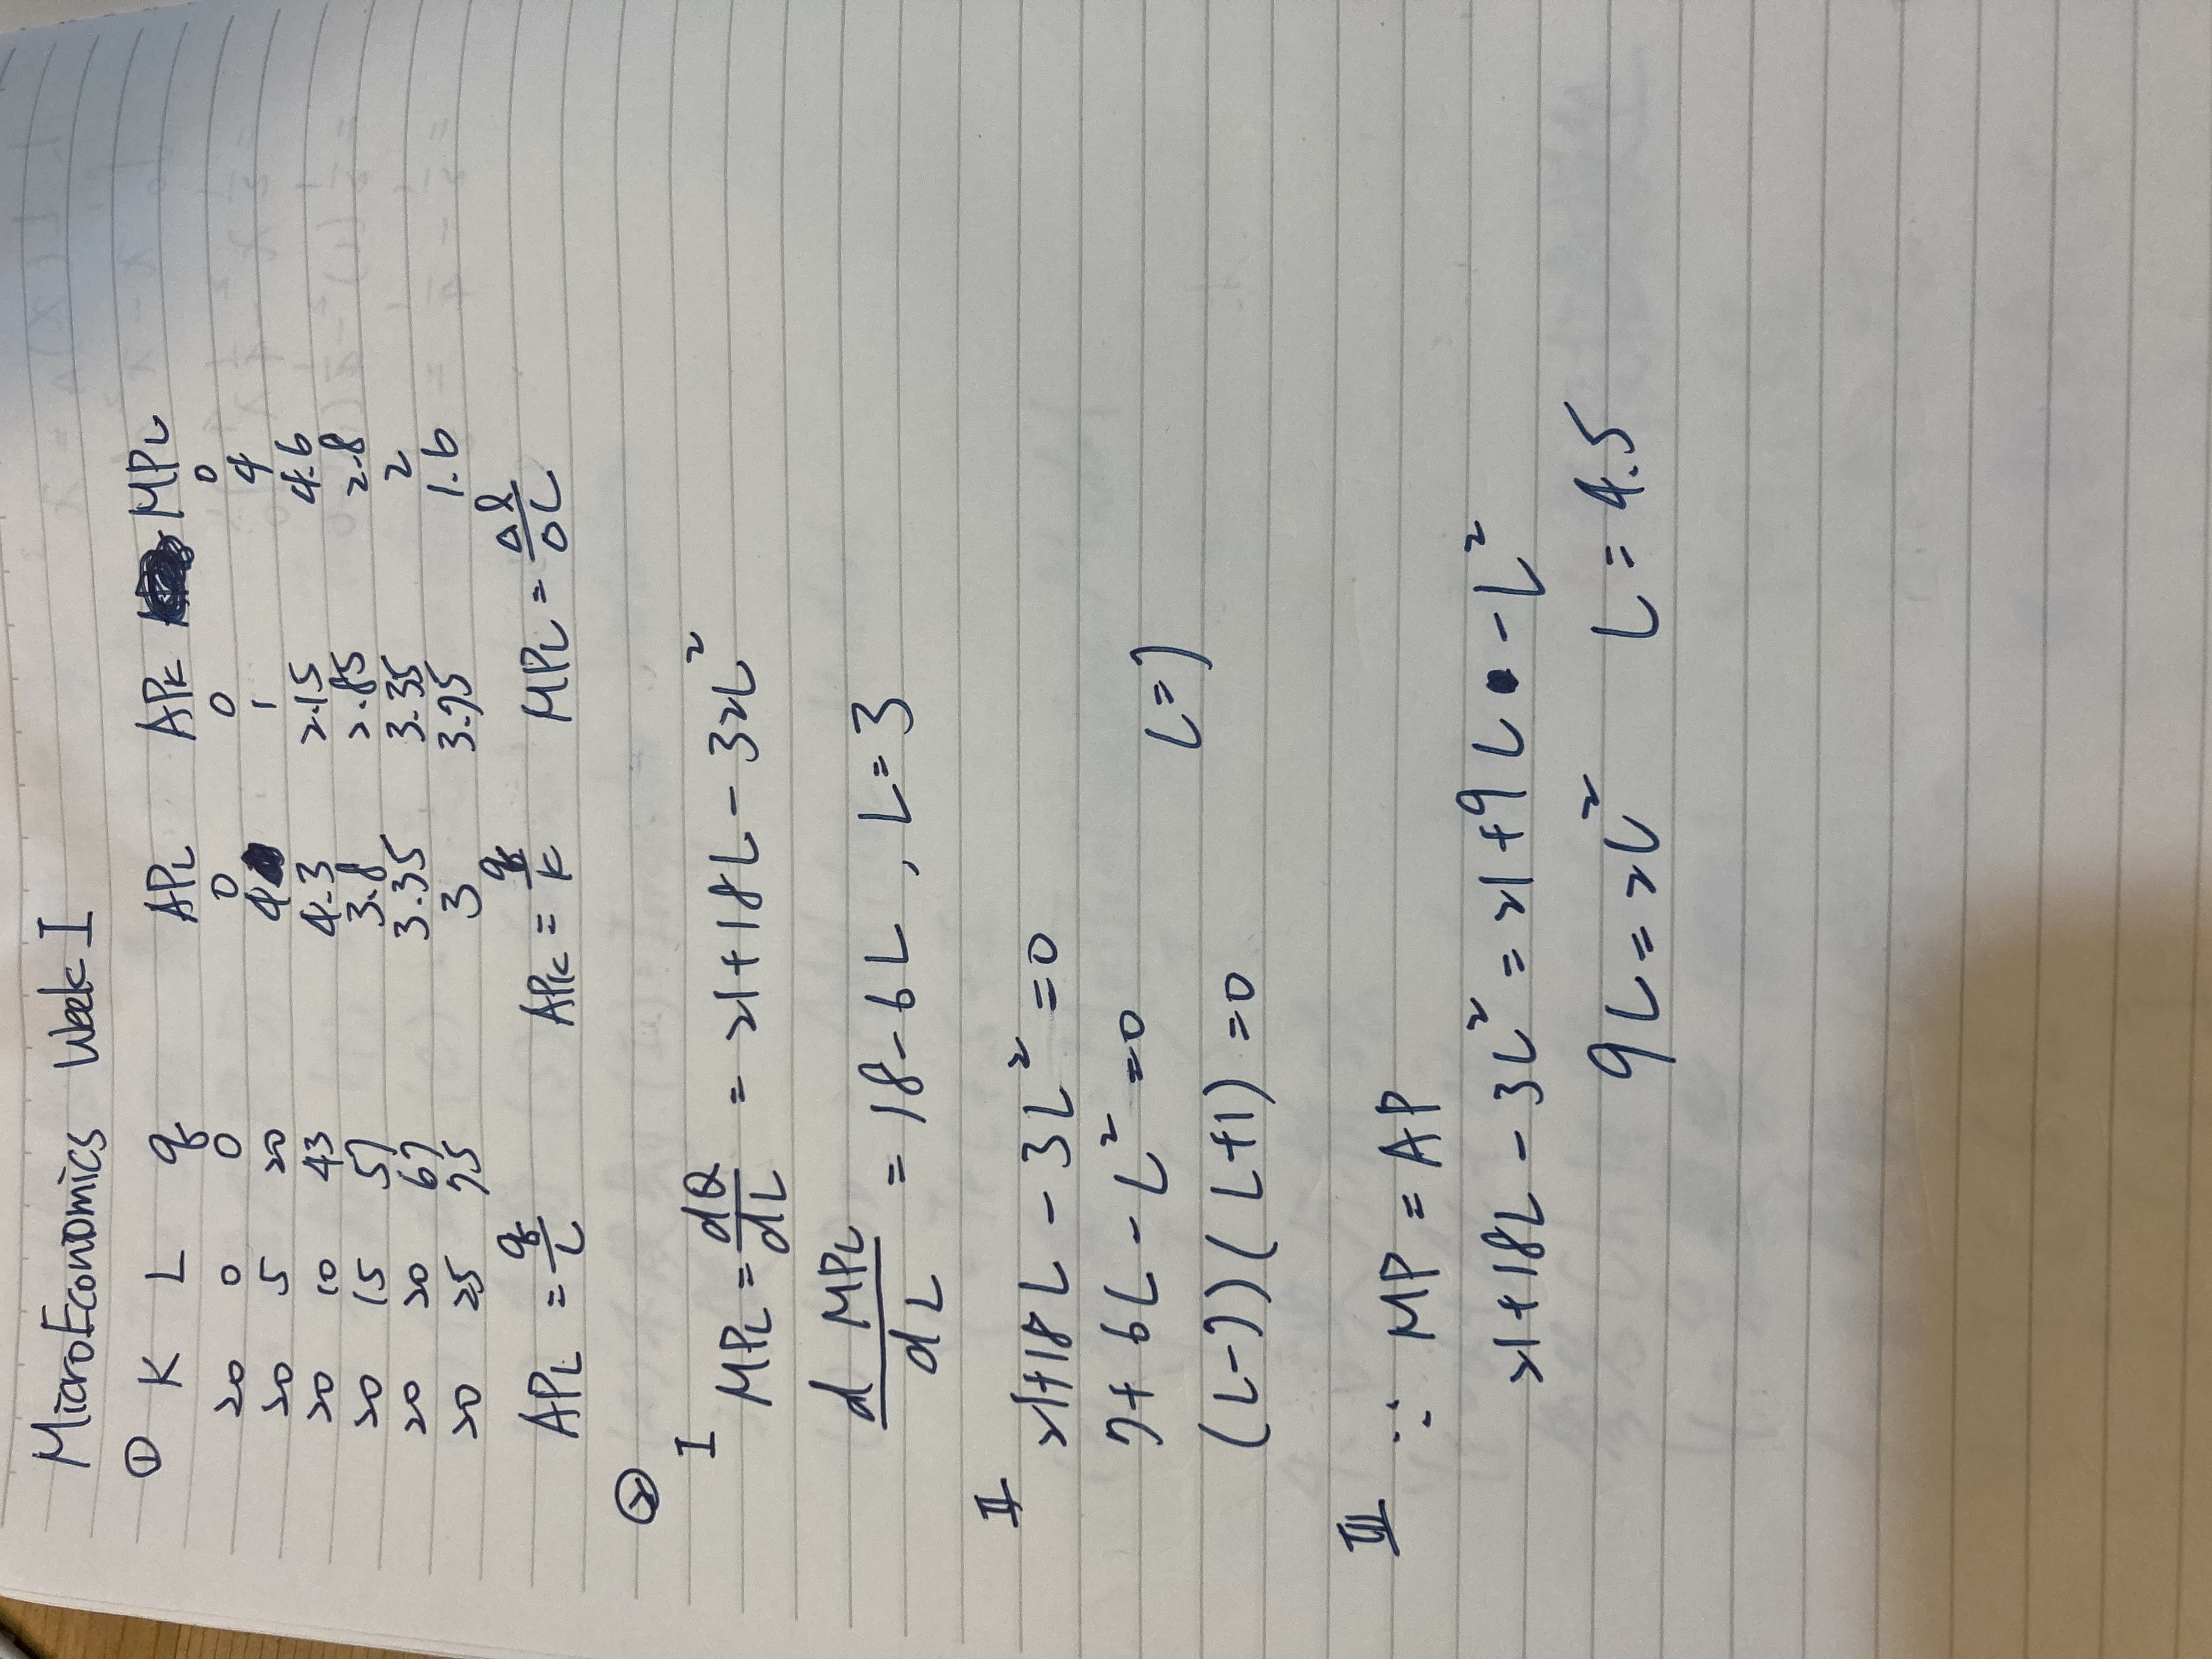 MicroEconomics Week I
① K L q APL APK MPL
20 0 0 0 0 0
20 5 20 4 1 4
20 10 43 4.3 2.15 4.6
20 15 57 3.8 2.85 2.8
20 20 67 3.35 3.35 2
20 25 75 3 3.75 1.6
APL = q/L APK = q/K MPL = Δq/ΔL
②
I MPL = dQ/dL = 21+18L-32L²
d MPL/dL = 18-6L , L=3
II
21+18L-3L²=0
7+6L-L²=0
L=7
(L-7)(L+1)=0
III ∵ MP = AP
21+18L-3L²=21+9L-L²
9L=2L² L=4.5